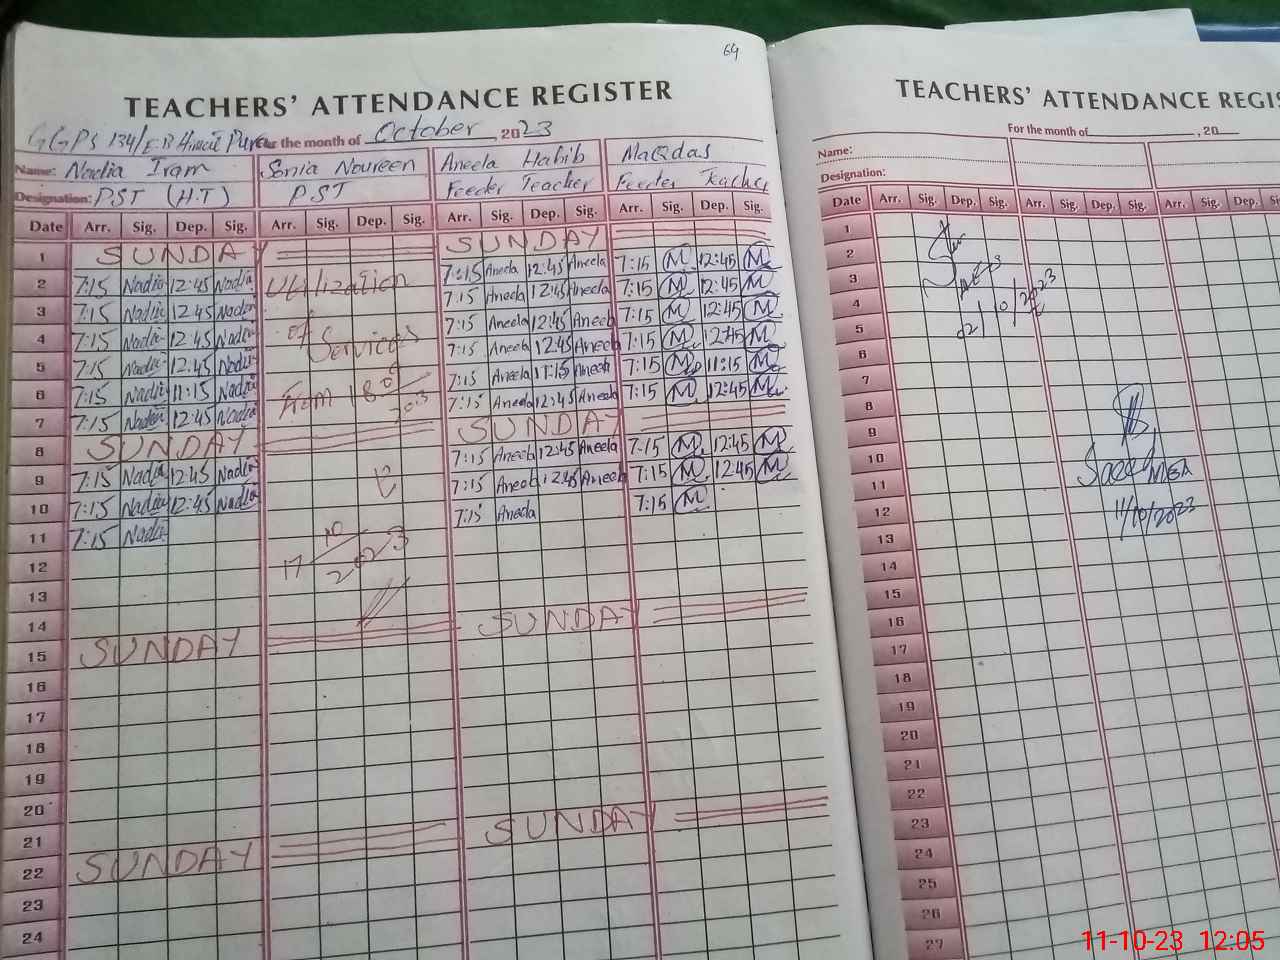 64
TEACHERS' ATTENDANCE REGISTER
GGPS 134/E.B For the month of October, 2023
Name: Nadia Iram Sonia Noureen Aneela Habib MaQdas
Designation: PST (H.T) PST Feeder Teacher Feeder Teacher
Date Arr. Sig. Dep. Sig. Arr. Sig. Dep. Sig. Arr. Sig. Dep. Sig. Arr. Sig. Dep. Sig.
1 SUNDAY SUNDAY
2 7:15 Nadia 12:45 Nadia Utilization 7:15 Aneela 12:45 Aneela 7:15 M 12:45 M
3 7:15 Nadia 12:45 Nadia 7:15 Aneela 12:45 Aneela 7:15 M 12:45 M
4 7:15 Nadia 12:45 Nadia of Services 7:15 Aneela 12:45 Aneela 7:15 M 12:45 M
5 7:15 Nadia 12:45 Nadia 7:15 Aneela 12:45 Aneela 7:15 M 12:45 M
6 7:15 Nadia 11:15 Nadia From 18 09 2023 7:15 Aneela 11:15 Aneela 7:15 M 11:15 M
7 7:15 Nadia 12:45 Nadia 7:15 Aneela 12:45 Aneela 7:15 M 12:45 M
8 SUNDAY SUNDAY
9 7:15 Nadia 12:45 Nadia 7:15 Aneela 12:45 Aneela 7:15 M 12:45 M
10 7:15 Nadia 12:45 Nadia 7:15 Aneela 12:45 Aneela 7:15 M 12:45 M
11 7:15 Nadia 7:15 Aneela 7:15 M
12 17 10 2023
13
14
15 SUNDAY SUNDAY
16
17
18
19
20
21
22 SUNDAY SUNDAY
23
24
TEACHERS' ATTENDANCE REGIS
For the month of , 20
Name:
Designation:
Date Arr. Sig. Dep. Sig. Arr. Sig. Dep. Sig. Arr. Sig. Dep. Si
1
2
3
4
5 02/10/2023
6
7
8
9
10
11 Saeed MEA
12 11/10/2023
13
14
15
16
17
18
19
20
21
22
23
24
25
26
27
11-10-23 12:05